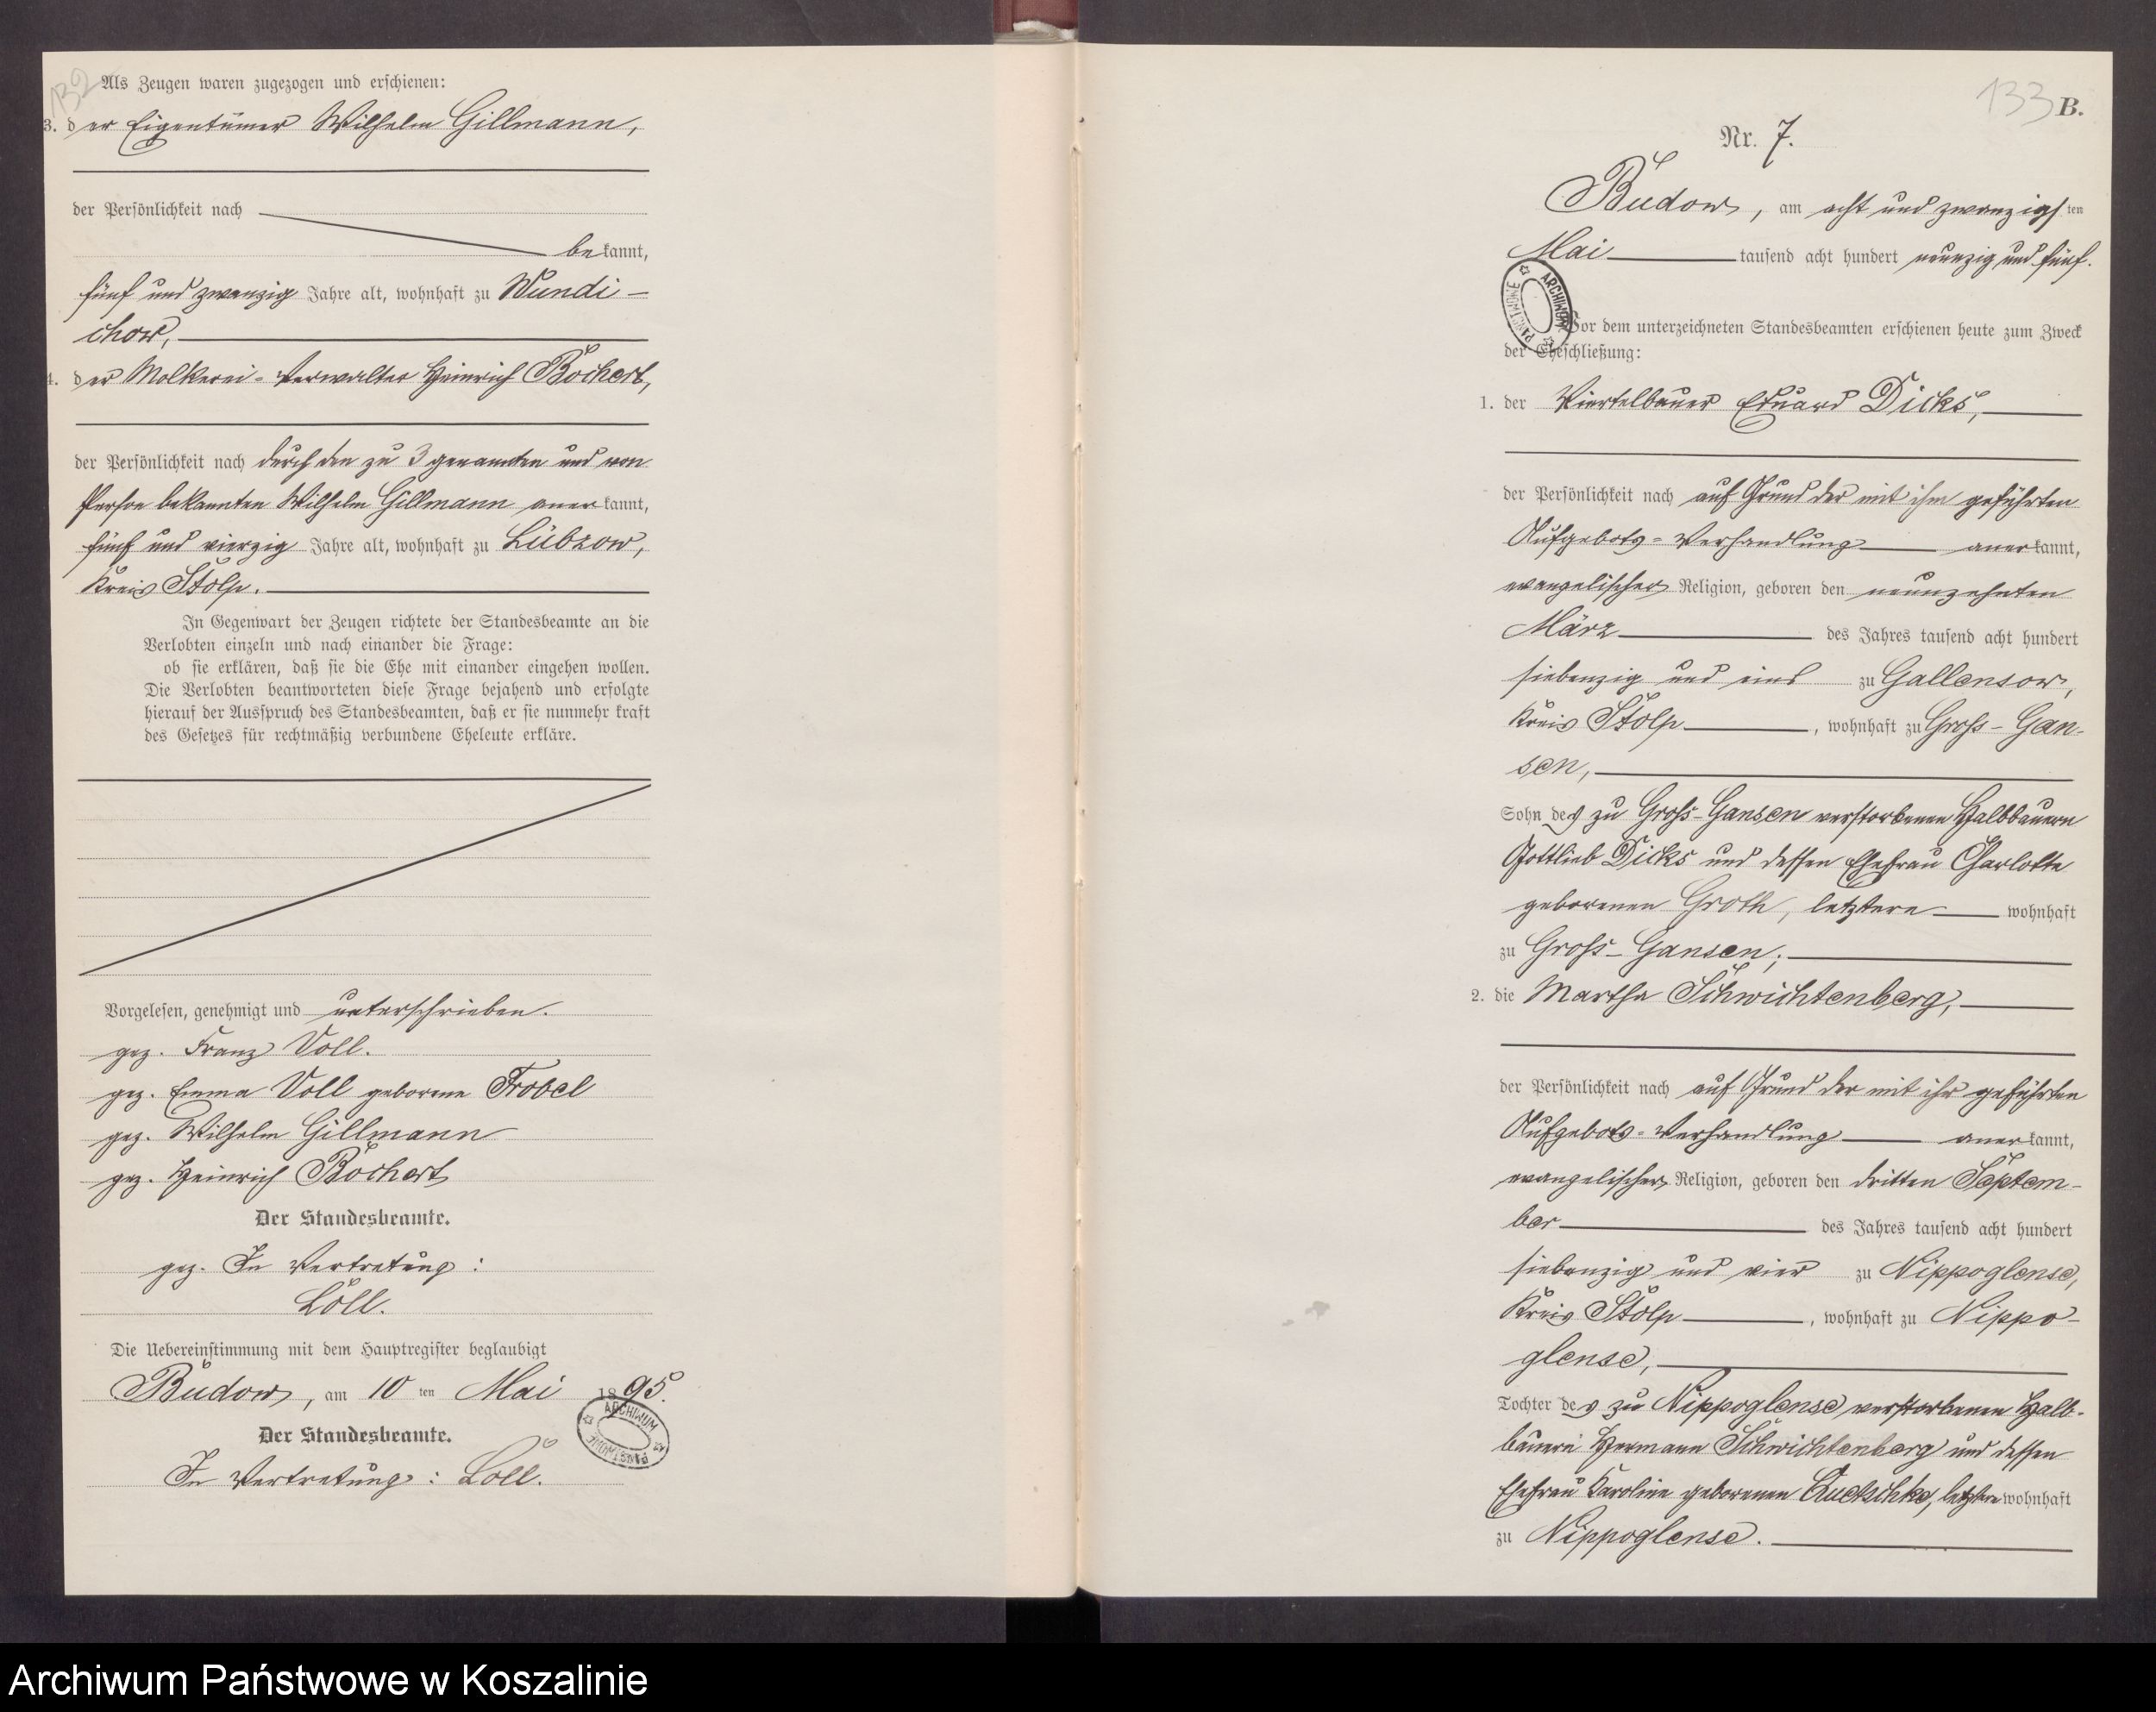 132
Als Zeugen waren zugezogen und erschienen:
3. der Eigentümer Wilhelm Gillmann,
der Persönlichkeit nach
bekannt,
fünf und zwanzig Jahre alt, wohnhaft zu Wundi-
chow,
4. der Molkerei-Verwalter Heinrich Böchert,
der Persönlichkeit nach durch den zu 3 genannten und von
Person bekannten Wilhelm Gillmann anerkannt,
fünf und vierzig Jahre alt, wohnhaft zu Lübzow,
Kreis Stolp.
In Gegenwart der Zeugen richtete der Standesbeamte an die
Verlobten einzeln und nach einander die Frage:
ob sie erklären, daß sie die Ehe mit einander eingehen wollen.
Die Verlobten beantworteten diese Frage bejahend und erfolgte
hierauf der Ausspruch des Standesbeamten, daß er sie nunmehr kraft
des Gesetzes für rechtmäßig verbundene Eheleute erkläre.
Vorgelesen, genehmigt und unterschrieben.
gez. Franz Voll.
gez. Emma Voll geborene Trobel
gez. Wilhelm Gillmann
gez. Heinrich Böchert
Der Standesbeamte.
gez. In Vertretung:
Löll.
Die Uebereinstimmung mit dem Hauptregister beglaubigt
Budow, am 10ten Mai 1895.
Der Standesbeamte.
In Vertretung: Löll.
ARCHIWUM PAŃSTWOWE
133
B.
Nr. 7.
Budow, am acht und zwanzigsten
Mai tausend acht hundert neunzig und fünf.
ARCHIWUM PAŃSTWOWE
Vor dem unterzeichneten Standesbeamten erschienen heute zum Zweck
der Eheschließung:
1. der Viertelbauer Eduard Dicks,
der Persönlichkeit nach auf Grund der mit ihm geführten
Aufgebots-Verhandlung anerkannt,
evangelischer Religion, geboren den neunzehnten
März des Jahres tausend acht hundert
siebenzig und eins zu Gallensow,
Kreis Stolp, wohnhaft zu Gross-Gan-
sen,
Sohn des zu Gross-Gansen verstorbenen Halbbauern
Gottlieb Dicks und dessen Ehefrau Charlotte
geborenen Groth, letztere wohnhaft
zu Gross-Gansen;
2. die Martha Schwichtenberg,
der Persönlichkeit nach auf Grund der mit ihr geführten
Aufgebots-Verhandlung anerkannt,
evangelischer Religion, geboren den dritten Septem-
ber des Jahres tausend acht hundert
siebenzig und vier zu Nippoglense,
Kreis Stolp, wohnhaft zu Nippo-
glense,
Tochter des zu Nippoglense verstorbenen Halb-
bauern Hermann Schwichtenberg und dessen
Ehefrau Karoline geborenen letztere wohnhaft
zu Nippoglense.
Archiwum Państwowe w Koszalinie